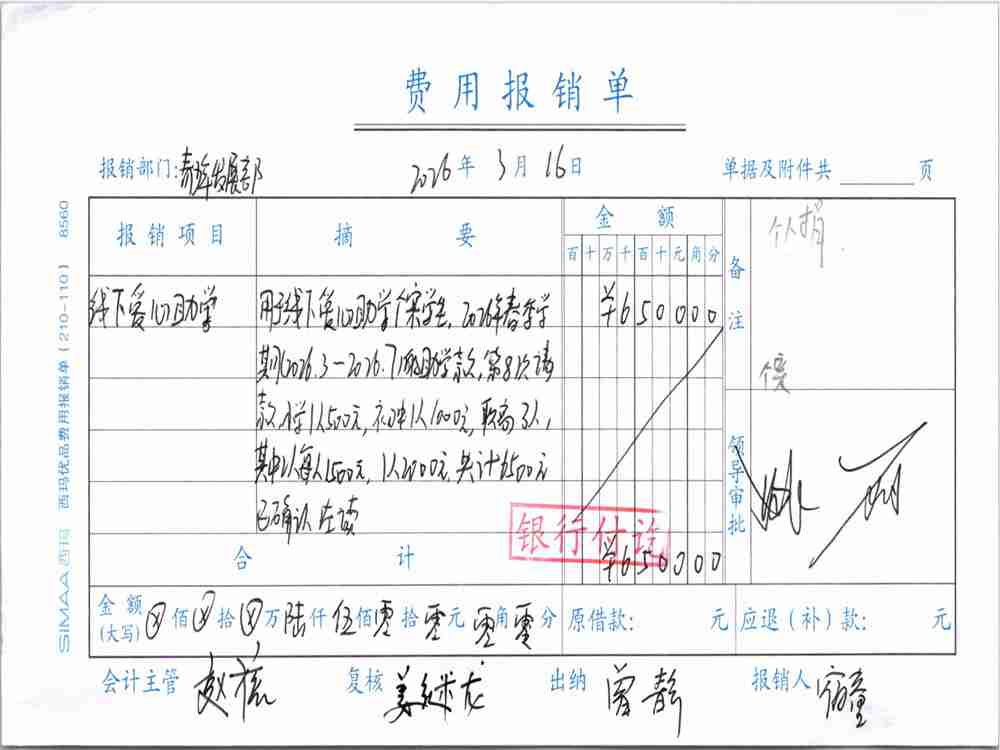 费用报销单
报销部门: 2026年3月16日 单据及附件共 页
报销项目 摘要 金额 备注
百十万千百十元角分
个人捐.
线下爱心助学 用于线下爱心助学个案学生,2026年春季学 ¥650000
期(2026.3-2026.7)的助学款,第8次请
款,小学1人500元,初中1人1000元,职高3人,
其中2人每人1500元,1人2000元,共计6500元
已确认在读
领导审批
银行付讫
合计 ¥650000
金额(大写) ⊗佰⊗拾⊗万陆仟伍佰零拾零元零角零分 原借款: 元 应退(补)款: 元
会计主管 复核 出纳 曾静 报销人
SIMAA西玛 西玛优品费用报销单(210-110) 8560